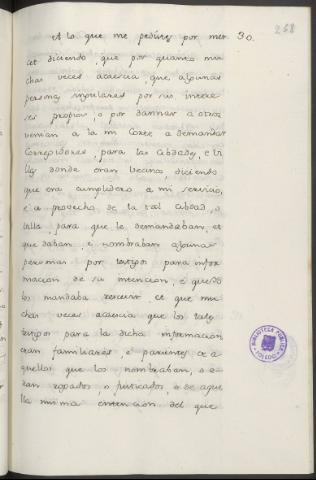 268
A lo que me pedistes por mer 30.
cet diciendo, que por quanto mu
chas veces acaecia, que algunas
personas singulares por sus intere
ses propios, o por dannar a otros
venian a la mi Corte a demandar
Corregidores, para las cibdades, e vi
llas donde eran vecinos, diciendo
que era cumplidero a mi servicio,
e a provecho de la tal cibdad, o
villa, para que le demandaban, et
que daban, e nombraban algunas
personas por testigos para infor
macion de su intencion, e quando
los mandaba rescevir, et que mu
chas veces acaecia que los tales
testigos para la dicha informacion
eran familiares, e parientes de a
quellos que los nombraban, o e
ran rogados, o de aque
lla misma entencion del que
BIBLIOTECA PUBLICA
TOLEDO